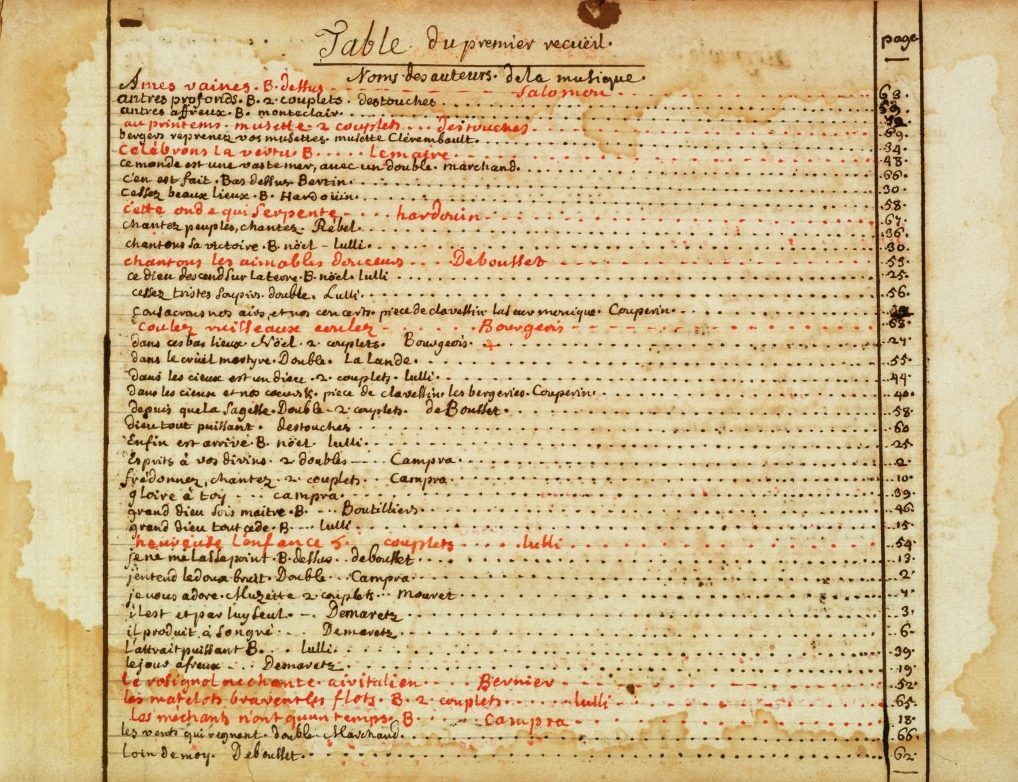 Table du premier recueil.
page
Noms des auteurs de la musique.
Ames vaines. B. dessus Salomon 68.
antres profonds. B. 2. couplets. destouches
antres affreux. B. monteclair.
au printems. musette 2 couplets destouches 69.
bergers reprenez vos musettes. musette Clérembault. 34
Celebrons la vertu B. Lemaire 48
ce monde est une vaste mer, avec un double. marchand. 66
c'en est fait. Bas dessus Bertin. 30
Cessez beaux lieux. B. Hardoüin.
cette onde qui serpente hardouin 58.
chantez peuples, chantez. Rébel. 67
chantons sa victoire. B. nöel - lulli. 36
chantons les aimables douceurs Debousset 30
ce dieu descend sur la terre. B. nöel. lulli 53
cessez tristes soupirs. double. Lulli. 25
consacrons nos airs, et nos concerts. piece de clavessin Couperin. 56
coulez ruisseaux coulez Bourgeois
dans ces bas lieux. Nöel. 2. couplets. Bourgeois. 27
dans le crüel martyre. Double. La Lande. 55
dans les cieux est un dieu. 2. couplets. lulli. 44
dans les cieux et nos coeurs. piece de clavessin. les bergeries. Couperin. 40
depuis que la sagesse. Double. 2 couplets. de Bousset. 58
dieu tout puissant. destouches 60
Enfin est arrivé B. nöel lulli. 25
Esprits à vos divins. 2 doubles Campra. 2
frédonnez, chantez 2 couplets. Campra. 10
gloire à toy campra. 39
grand dieu sois maitre. B. Boutilliers 46
grand dieu tout cede. B. lulli. 15
heureuse l'enfance 5. couplets lulli 54
je ne me lasse point. B. dessus. deboußet 13
j'entend le doux bruit. Double. Campra. 2
je vous adore. Muzette 2 couplets. mouret 7
il est et par luy seul. Demaretz 3.
il produit à son gré. Demaretz. 6.
l'attrait puissant B. lulli. 39
le jour afreux Demaretz. 19
le rosignol me chante air italien Bernier 52
les matelots bravent les flots. B. 2 couplets. lulli 65
les mechants n'ont qu'un temps. B. campra 18.
les vents qui regnent. double. Marchand. 66
loin de moy. Debousset. 62